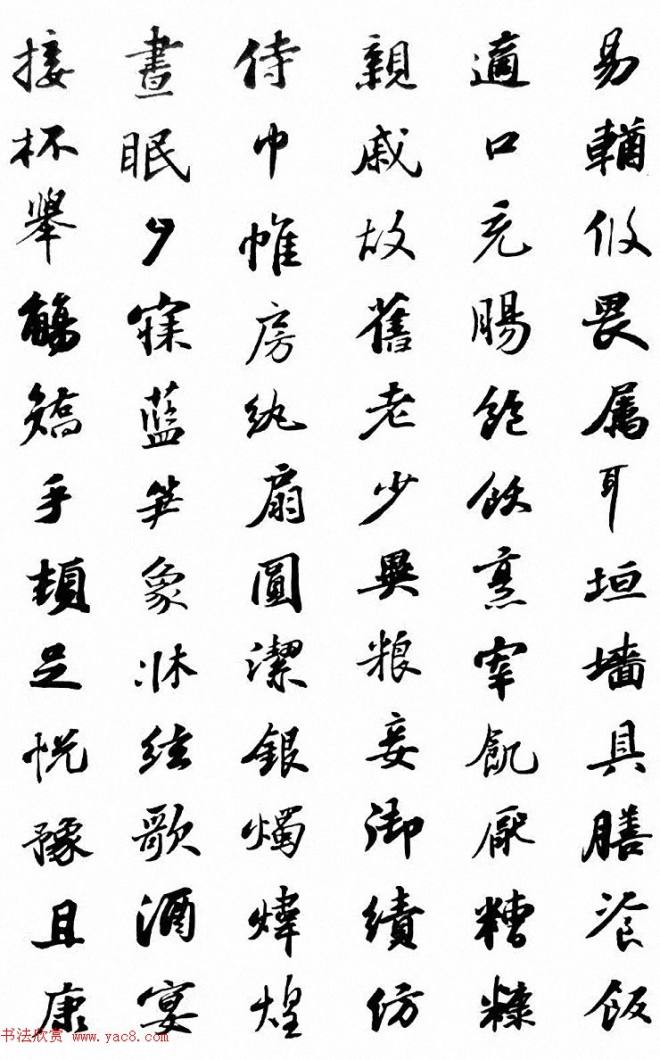 易輶攸畏属耳垣墙具膳飡飯
適口充腸飽飫烹宰飢厭糟糠
親戚故舊老少異粮妾御績紡
侍巾帷房紈扇圓潔銀燭煒煌
晝眠夕寐藍笋象牀絃歌酒宴
接杯舉觴矯手頓足悦豫且康
书法欣赏 www.yac8.com